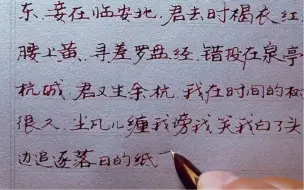 东、妾在临安北，君去时褐衣红
腰上黄，寻差罗盘经，错投在泉亭
杭城，君又生余杭，我在时间的
很久，尘凡儿缠我谤我笑我白了头
边追逐落日的纸